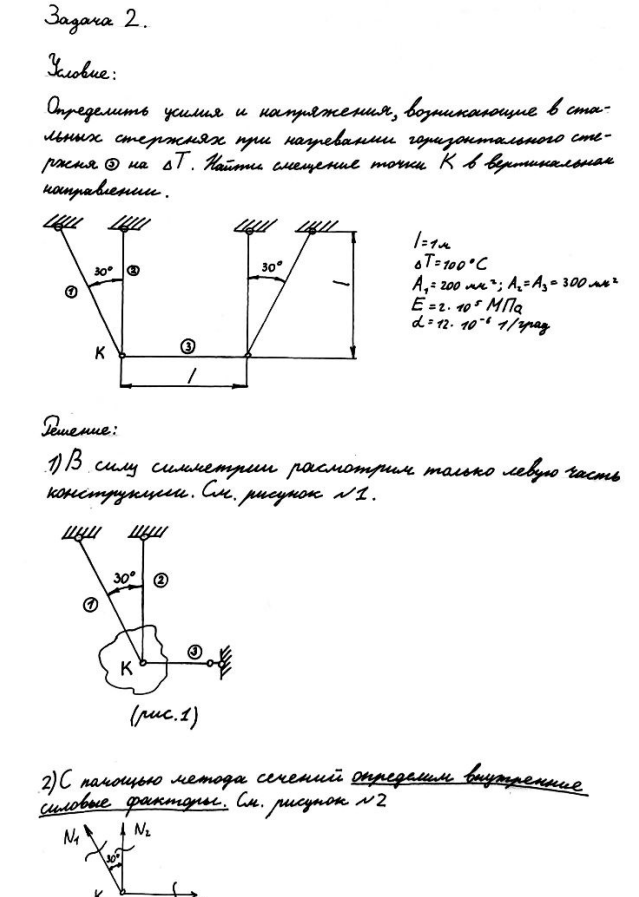 Задача 2.
Условие:
Определить усилия и напряжения, возникающие в ста-
льных стержнях при нагревании горизонтального сте-
ржня ③ на ΔT. Найти смещение точки K в вертикальном
направлении.
30° ② 30°
①
l
K ③
l
l=1м
ΔT=100°C
A₁=200 мм²; A₂=A₃=300 мм²
E=2·10⁵ МПа
α=12·10⁻⁶ 1/град
Решение:
1) В силу симметрии расмотрим только левую часть
конструкции. См. рисунок №1.
30° ②
①
K ③
(рис.1)
2) С помощью метода сечений определим внутренние
силовые факторы. См. рисунок №2
N₁ N₂
30°
K